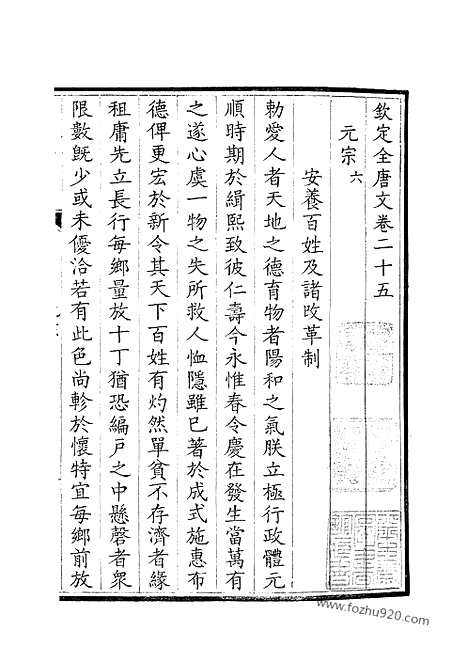 欽定全唐文卷二十五
元宗六
安養百姓及諸改革制
勅愛人者天地之德育物者陽和之氣朕立極行政體元
順時期於緝熙致彼仁壽今永惟春令慶在發生當萬有
之遂心虞一物之失所救人恤隱雖已著於成式施惠布
德俾更宏於新令其天下百姓有灼然單貧不存濟者緣
租庸先立長行每鄉量放十丁猶恐編戶之中懸磬者衆
限數旣少或未優洽若有此色尚軫於懷特宜每鄉前放
www.fozhu920.com